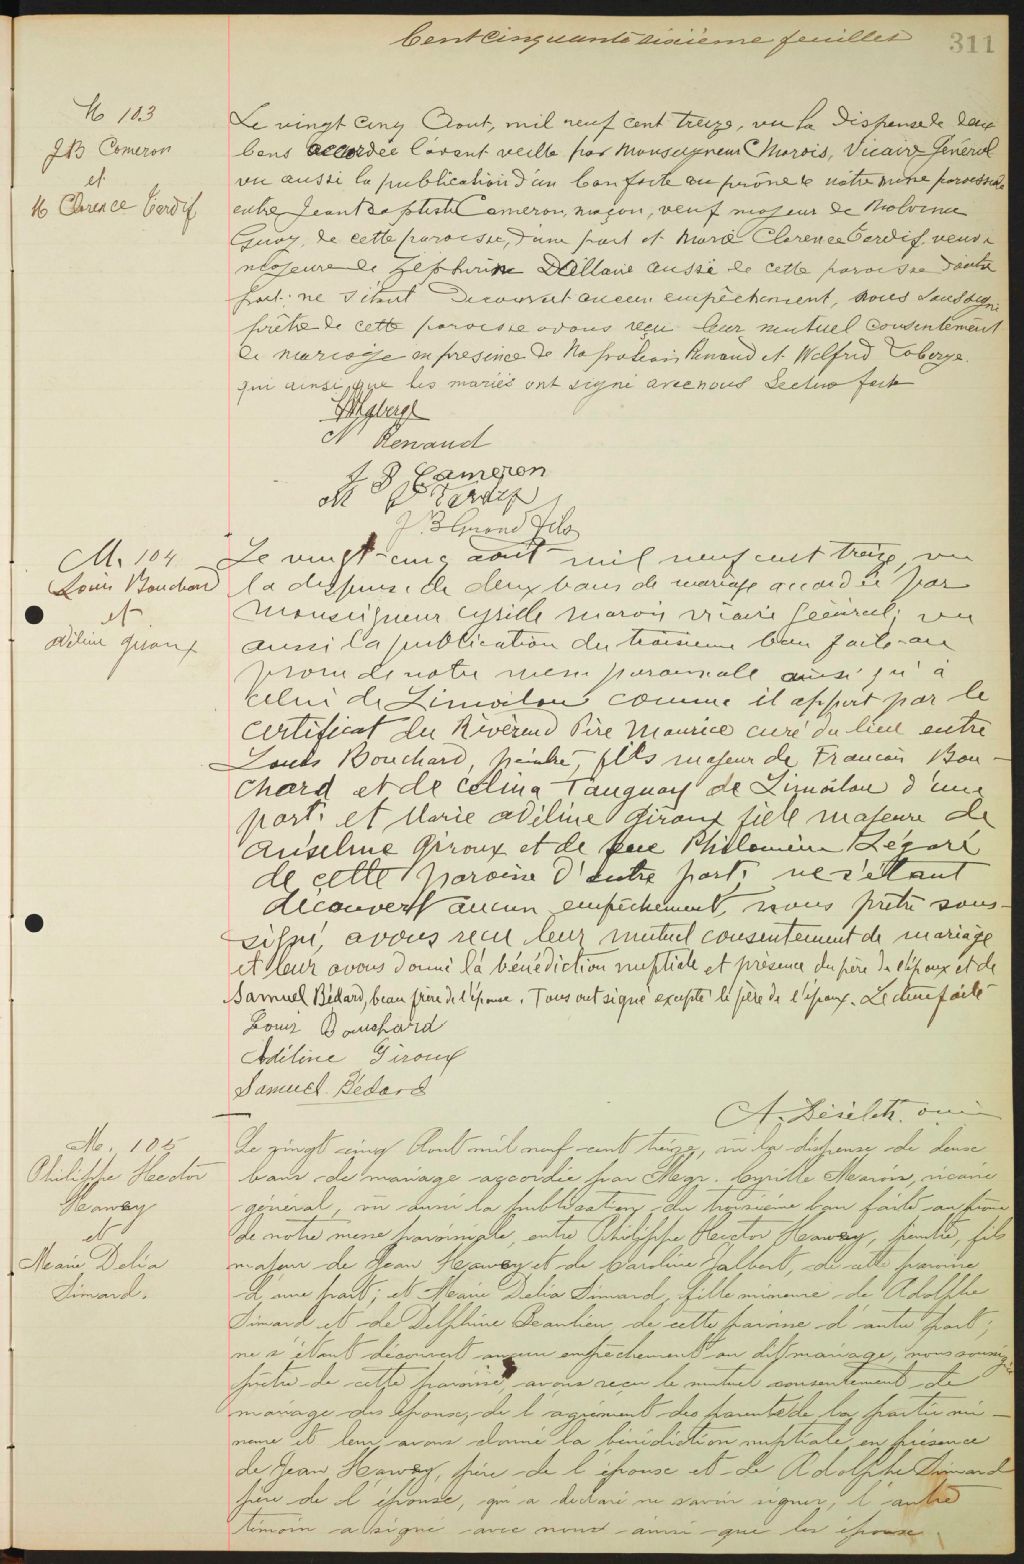 Cent cinquante sixième feuillet
311
M 103
JB Cameron
et
M Clarence Tardif
Le vingt cinq Aout, mil neuf cent treize, vu la dispense de deux
bans accordée l'avant veille par Monseigneur C Marois, Vicaire Général
vu aussi la publication d'un ban faite au prône de notre messe paroissiale
entre Jean Baptiste Cameron, maçon, veuf majeur de Malvina
Guay, de cette paroisse, d'une part et Marie Clarence Tardif veuve
majeure de Zéphirin Dallaire aussi de cette paroisse d'autre
part; ne s'étant découvert aucun empêchement, nous soussigné
prêtre de cette paroisse avons reçu leur mutuel consentement
de mariage en presence de Napoléon Renaud et Wilfrid Laberge
qui ainsi que les mariés ont signé avec nous Lecture faite
Laberge
N Renaud
J B Cameron
M C Tardif
J. B Girard fils
M. 104
Louis Bouchard
et
Adéline Giroux
Le vingt-cinq août mil neuf cent treize, vu
la dispense de deux bans de mariage accordée par
Monseigneur Cyrille Marois vicaire général; vu
aussi la publication du troisieme ban faite au
prone de notre messe paroissiale ainsi qu'à
celui de Limoilou comme il appert par le
certificat du Révérend Père Maurice curé du lieu entre
Louis Bouchard, peintre, fils majeur de Francois Bou-
chard et de Célina Tanguay de Limoilou d'une
part; et Marie Adéline Giroux fille majeure de
Anselme Giroux et de feue Philomène Légaré
de cette paroisse d'autre part; ne s'étant
découvert aucun empêchement, nous prêtre sous-
signé, avons reçu leur mutuel consentement de mariage
et leur avons donné la bénédiction nuptiale et présence du père de l'époux et de
Samuel Bédard, beau frère de l'épouse. Tous ont signé excepté le père de l'époux. Lecture faite
Louis Bouchard
Adéline Giroux
Samuel Bédard
A. Désilets
M. 105
Philippe Hector
Hawey
et
Marie Delia
Simard.
Le vingt-cinq Aout mil neuf cent treize, vu la dispense de deux
bans de mariage accordée par Mgr. Cyrille Marois, vicaire
général, vu aussi la publication du troisième ban faite au prône
de notre messe paroissiale, entre Philippe Hector Hawey, peintre, fils
majeur de Jean Hawey et de Caroline Jalbert, de cette paroisse
d'une part; et Marie Delia Simard, fille mineure de Adolphe
Simard et de Delphine Beaulieu, de cette paroisse d'autre part;
ne s'étant découvert aucun empêchement au dit mariage, nous soussigné
prêtre de cette paroisse, avons reçu le mutuel consentement de
mariage des époux, de l'agrément des parents de la partie mi-
neure et leur avons donné la bénédiction nuptiale, en présence
de Jean Hawey, père de l'époux et de Adolphe Simard
père de l'épouse, qui a déclaré ne savoir signer, l'autre
témoin a signé avec nous ainsi que les époux.